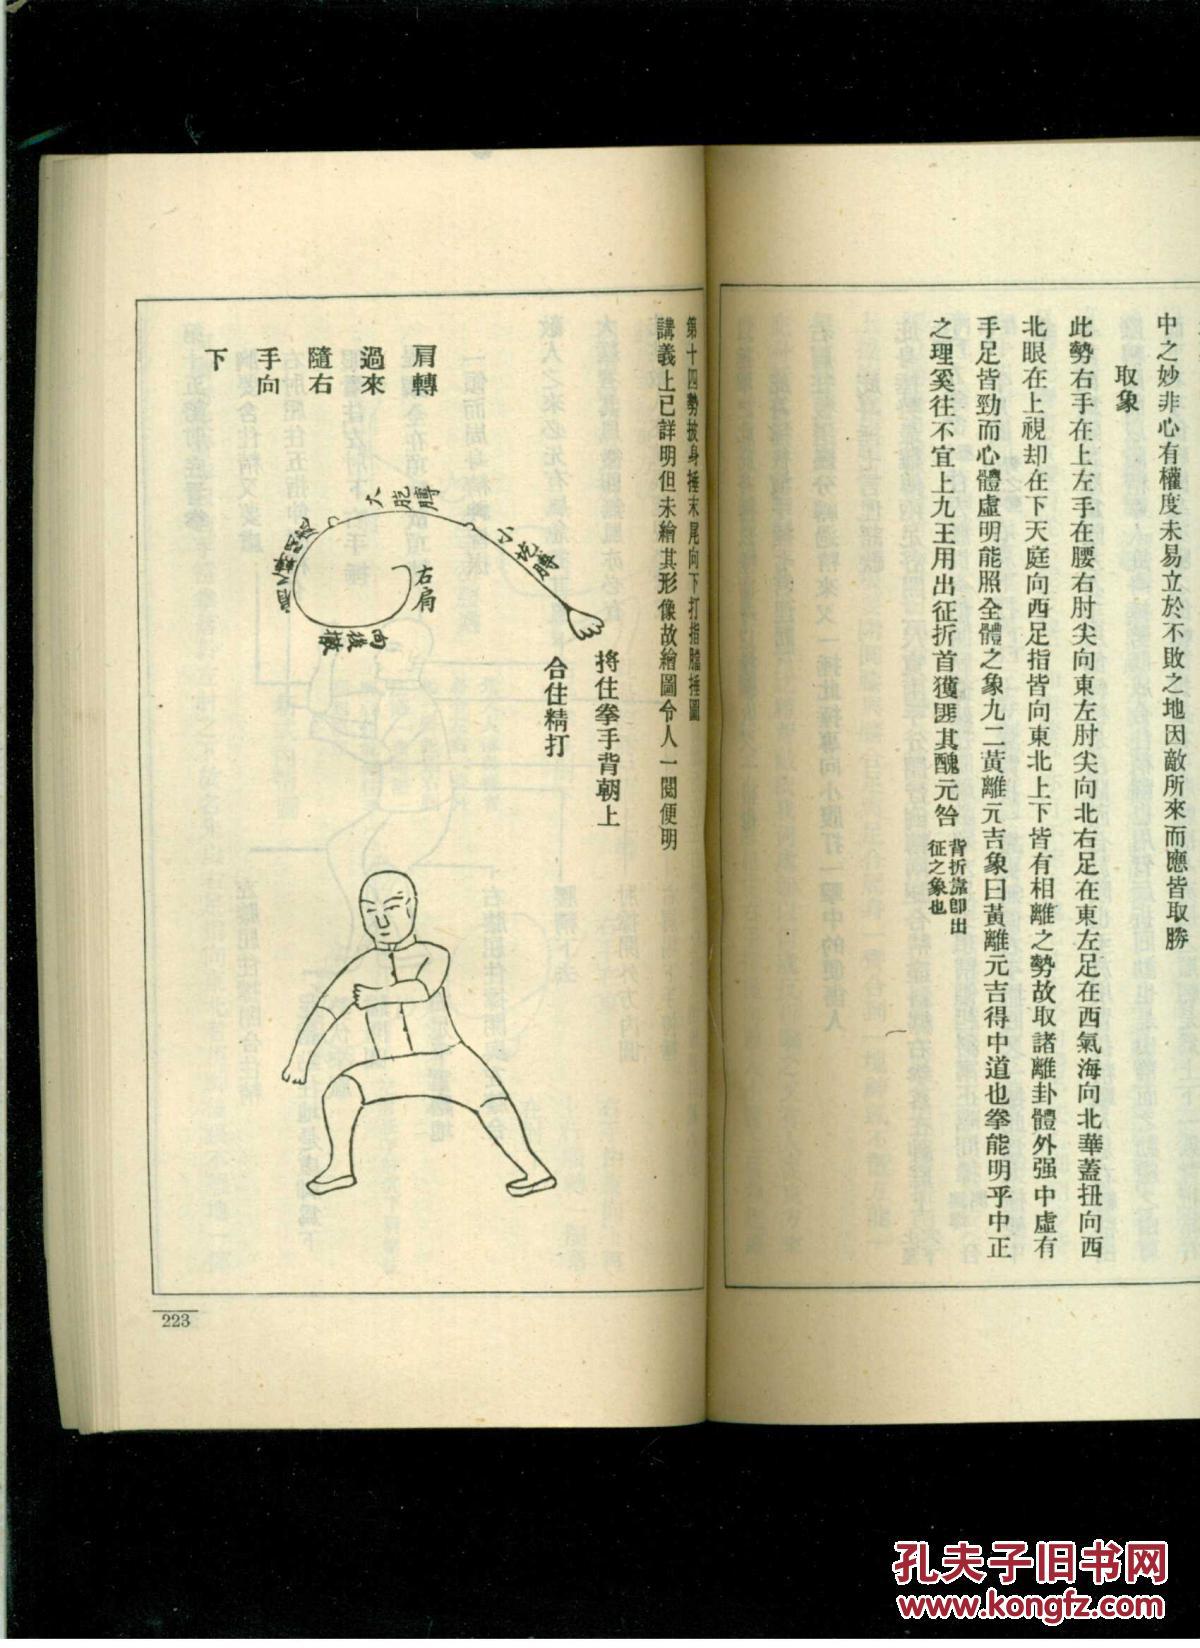 中之妙非心有權度未易立於不敗之地因敵所來而應皆取勝
取象
此勢右手在上左手在腰右肘尖向東左肘尖向北右足在東左足在西氣海向北華蓋扭向西
北眼在上視却在下天庭向西足指皆向東北上下皆有相離之勢故取諸離卦體外强中虛有
手足皆勁而心體虛明能照全體之象九二黃離元吉象曰黃離元吉得中道也拳能明乎中正
之理奚往不宜上九王用出征折首獲匪其醜元咎
背折靠卽出
征之象也
第十四勢披身捶末尾向下打指膽捶圖
講義上已詳明但未繪其形像故繪圖令人一閱便明
將住拳手背朝上
合住精打
小肐膊
大肐膊
右肩
向後撤
肩轉
過來
隨右
手向
下
223
孔夫子旧书网
www.kongfz.com